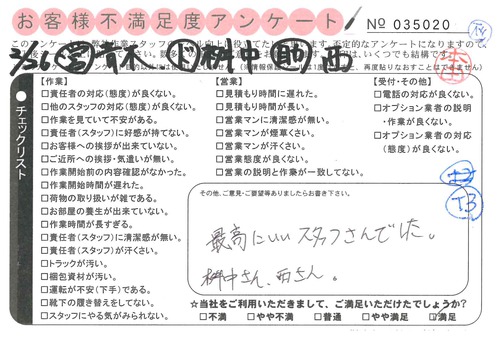 お客様不満足度アンケート
No 035020
チェックリスト
【作業】
□責任者の対応(態度)が良くない。
□他のスタッフの対応(態度)が良くない。
□作業を見ていて不安がある。
□責任者(スタッフ)に好感が持てない。
□お客様への挨拶が出来ていない。
□ご近所への挨拶・気遣いが無い。
□作業開始前の内容確認がなかった。
□作業開始時間が遅れた。
□荷物の取り扱いが雑である。
□お部屋の養生が出来ていない。
□作業時間が長すぎる。
□責任者(スタッフ)に清潔感が無い。
□責任者(スタッフ)が汗くさい。
□トラックが汚い。
□梱包資材が汚い。
□運転が不安(下手)である。
□靴下の履き替えをしてない。
□スタッフにやる気がみられない。
【営業】
□見積もり時間に遅れた。
□見積もり時間が長い。
□営業マンに清潔感が無い。
□営業マンが煙草くさい。
□営業マンが汗くさい。
□営業態度が良くない。
□営業の説明と作業が一致してない。
【受付・その他】
□電話の対応が良くない。
□オプション業者の説明・作業が良くない。
□オプション業者の対応(態度)が良くない。
その他、ご意見・ご要望等ありましたらお書き下さい。
最高にいいスタッフさんでした。
桝中さん、西さん。
☆当社をご利用いただきまして、ご満足いただけたでしょうか?
□不満 □やや不満 □普通 □やや満足 □満足